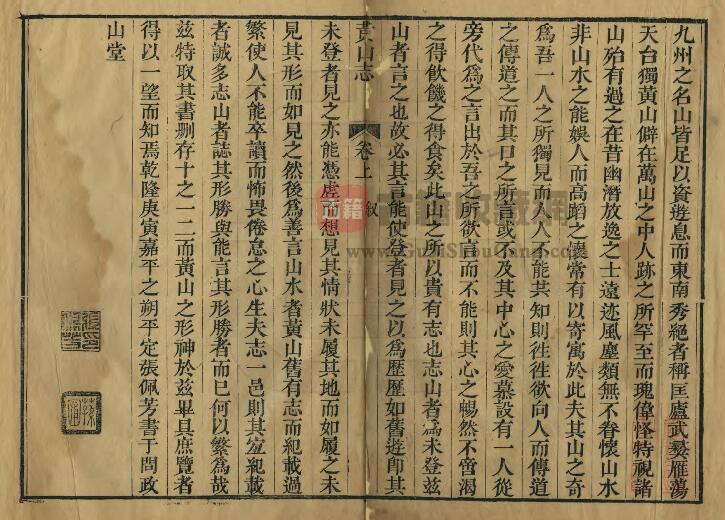 九州之名山皆足以資遊息而東南秀絕者稱匡廬武夷雁蕩
天台獨黃山僻在萬山之中人跡之所罕至而瑰偉怪特視諸
山殆有過之在昔幽潛放逸之士遠迹風塵類無不眷懷山水
非山水之能娛人而高蹈之懷常有以寄寓於此夫其山之奇
為吾一人之所獨見而人人不能共知則徃徃欲向人而傳道
之傳道之而其口之所言或不及其中心之愛慕設有一人從
旁代為之言出於吾之所欲言而不能則其心之暢然不啻渴
之得飲饑之得食矣此山之所以貴有志也志山者為未登茲
山者言之也故必其言能使登者見之以為歷歷如舊遊即其
黃山志
卷上 叙
未登者見之亦能憑虛而想見其情狀未履其地而如履之未
見其形而如見之然後為善言山水者黃山舊有志而紀載過
繁使人不能卒讀而怖畏倦怠之心生夫志一邑則其室紀載
者誠多志山者誌其形勝與能言其形勝者而已何以繁為哉
茲特取其書刪存十之一二而黃山之形神於茲畢具庶覽者
得以一望而知焉乾隆庚寅嘉平之朔平定張佩芳書于問政
山堂
古籍收藏網
www.GuJiShouCang.com